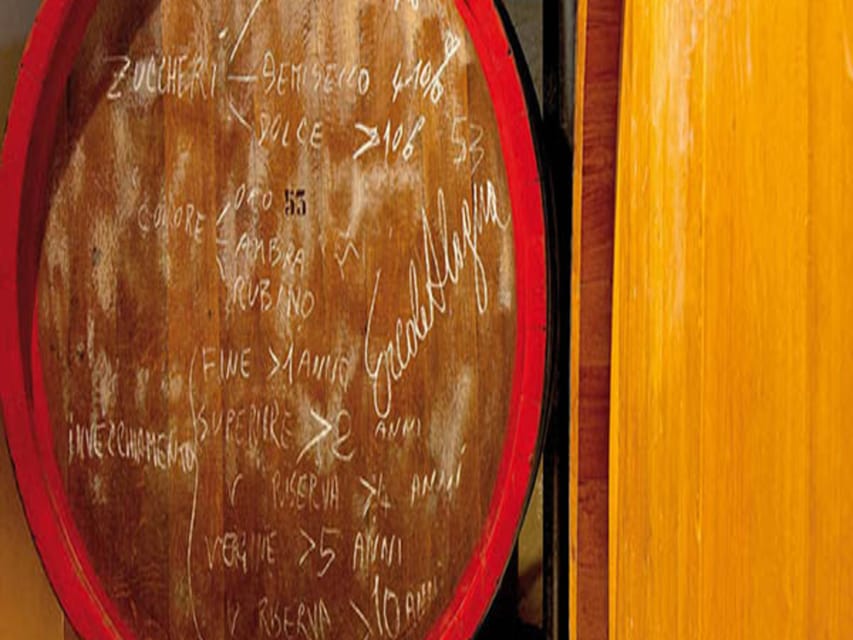 ZUCCHERI - SEMISECCO
DOLCE >10%
53
COLORE
ORO
55
AMBRA
RUBINO
FINE >1 ANNO
INVECCHIAMENTO
SUPERIORE >2 ANNI
RISERVA >4 ANNI
VERGINE >5 ANNI
RISERVA >10 ANNI